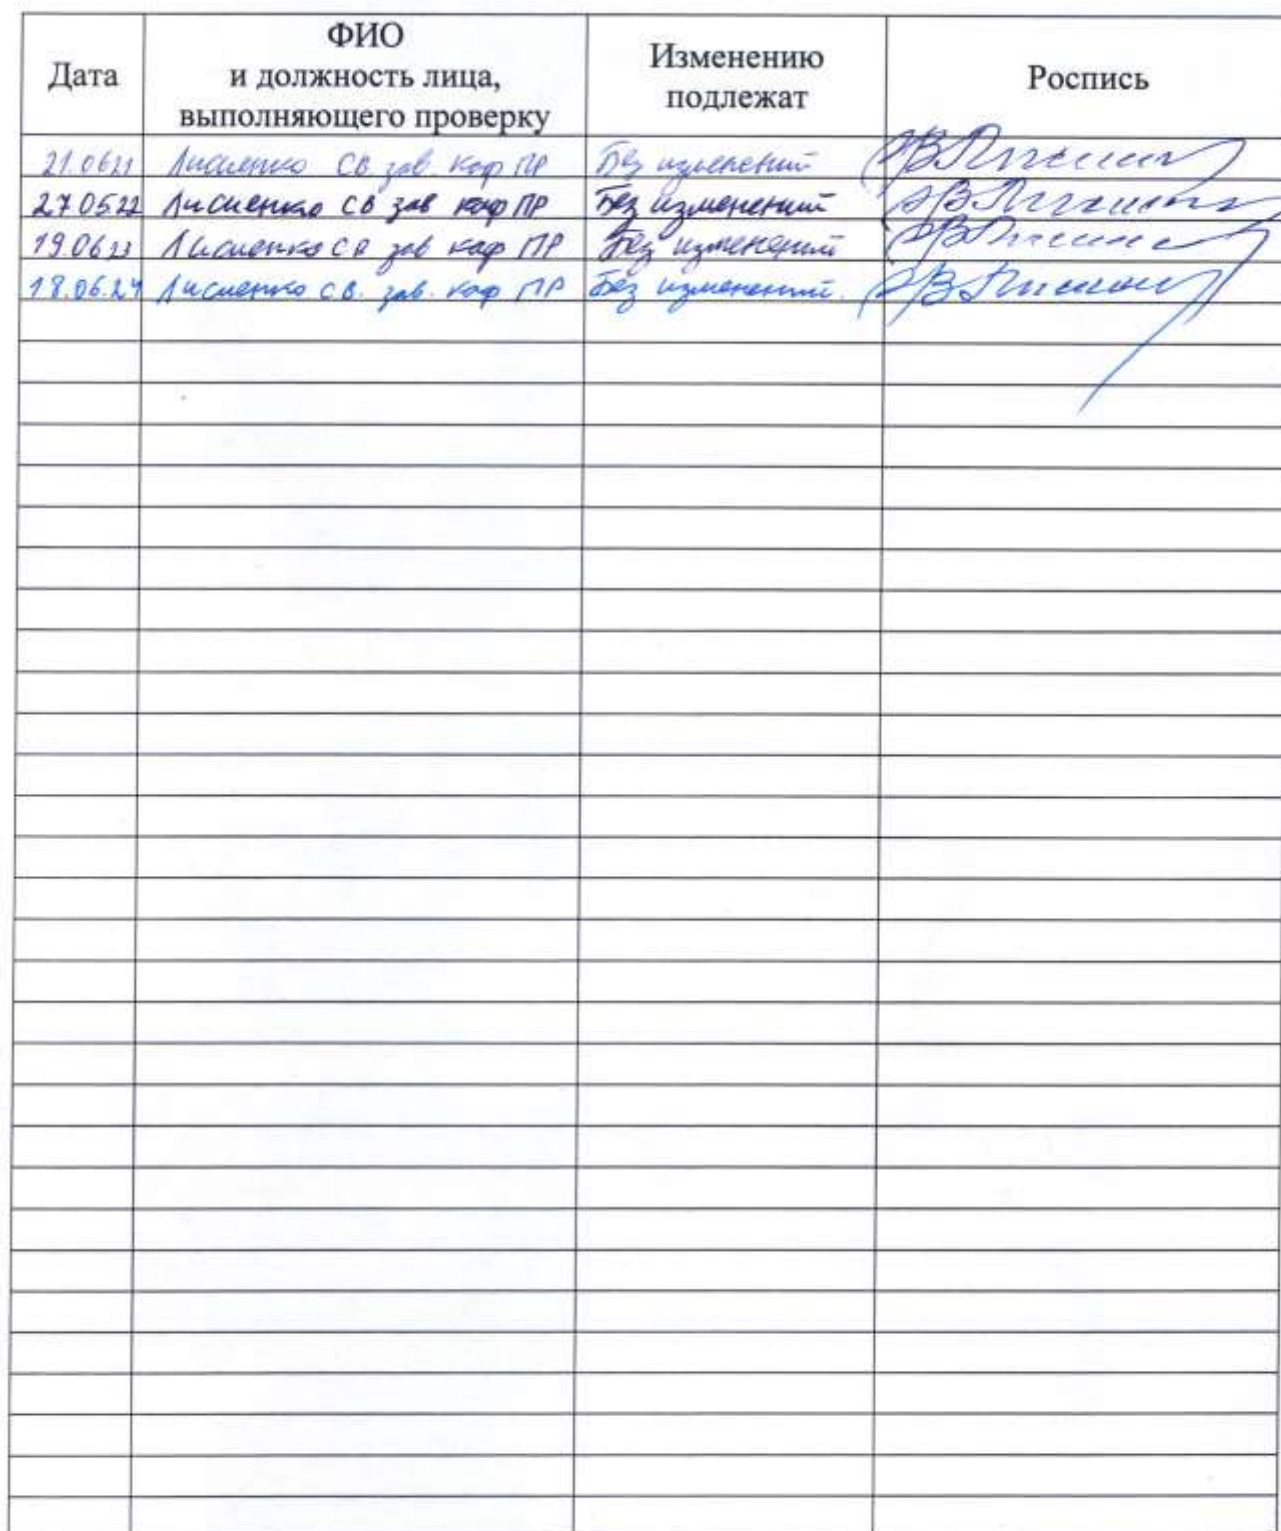 Дата
ФИО
и должность лица,
выполняющего проверку
Изменению
подлежат
Роспись
21.06 21 Лисиенко СВ зав. каф ПР Без изменений
27 05 22 Лисиенко СВ зав каф ПР Без изменений
19.06 23 Лисиенко СВ зав каф ПР Без изменений
18.06.24 Лисиенко С.В. зав. каф ПР Без изменений.